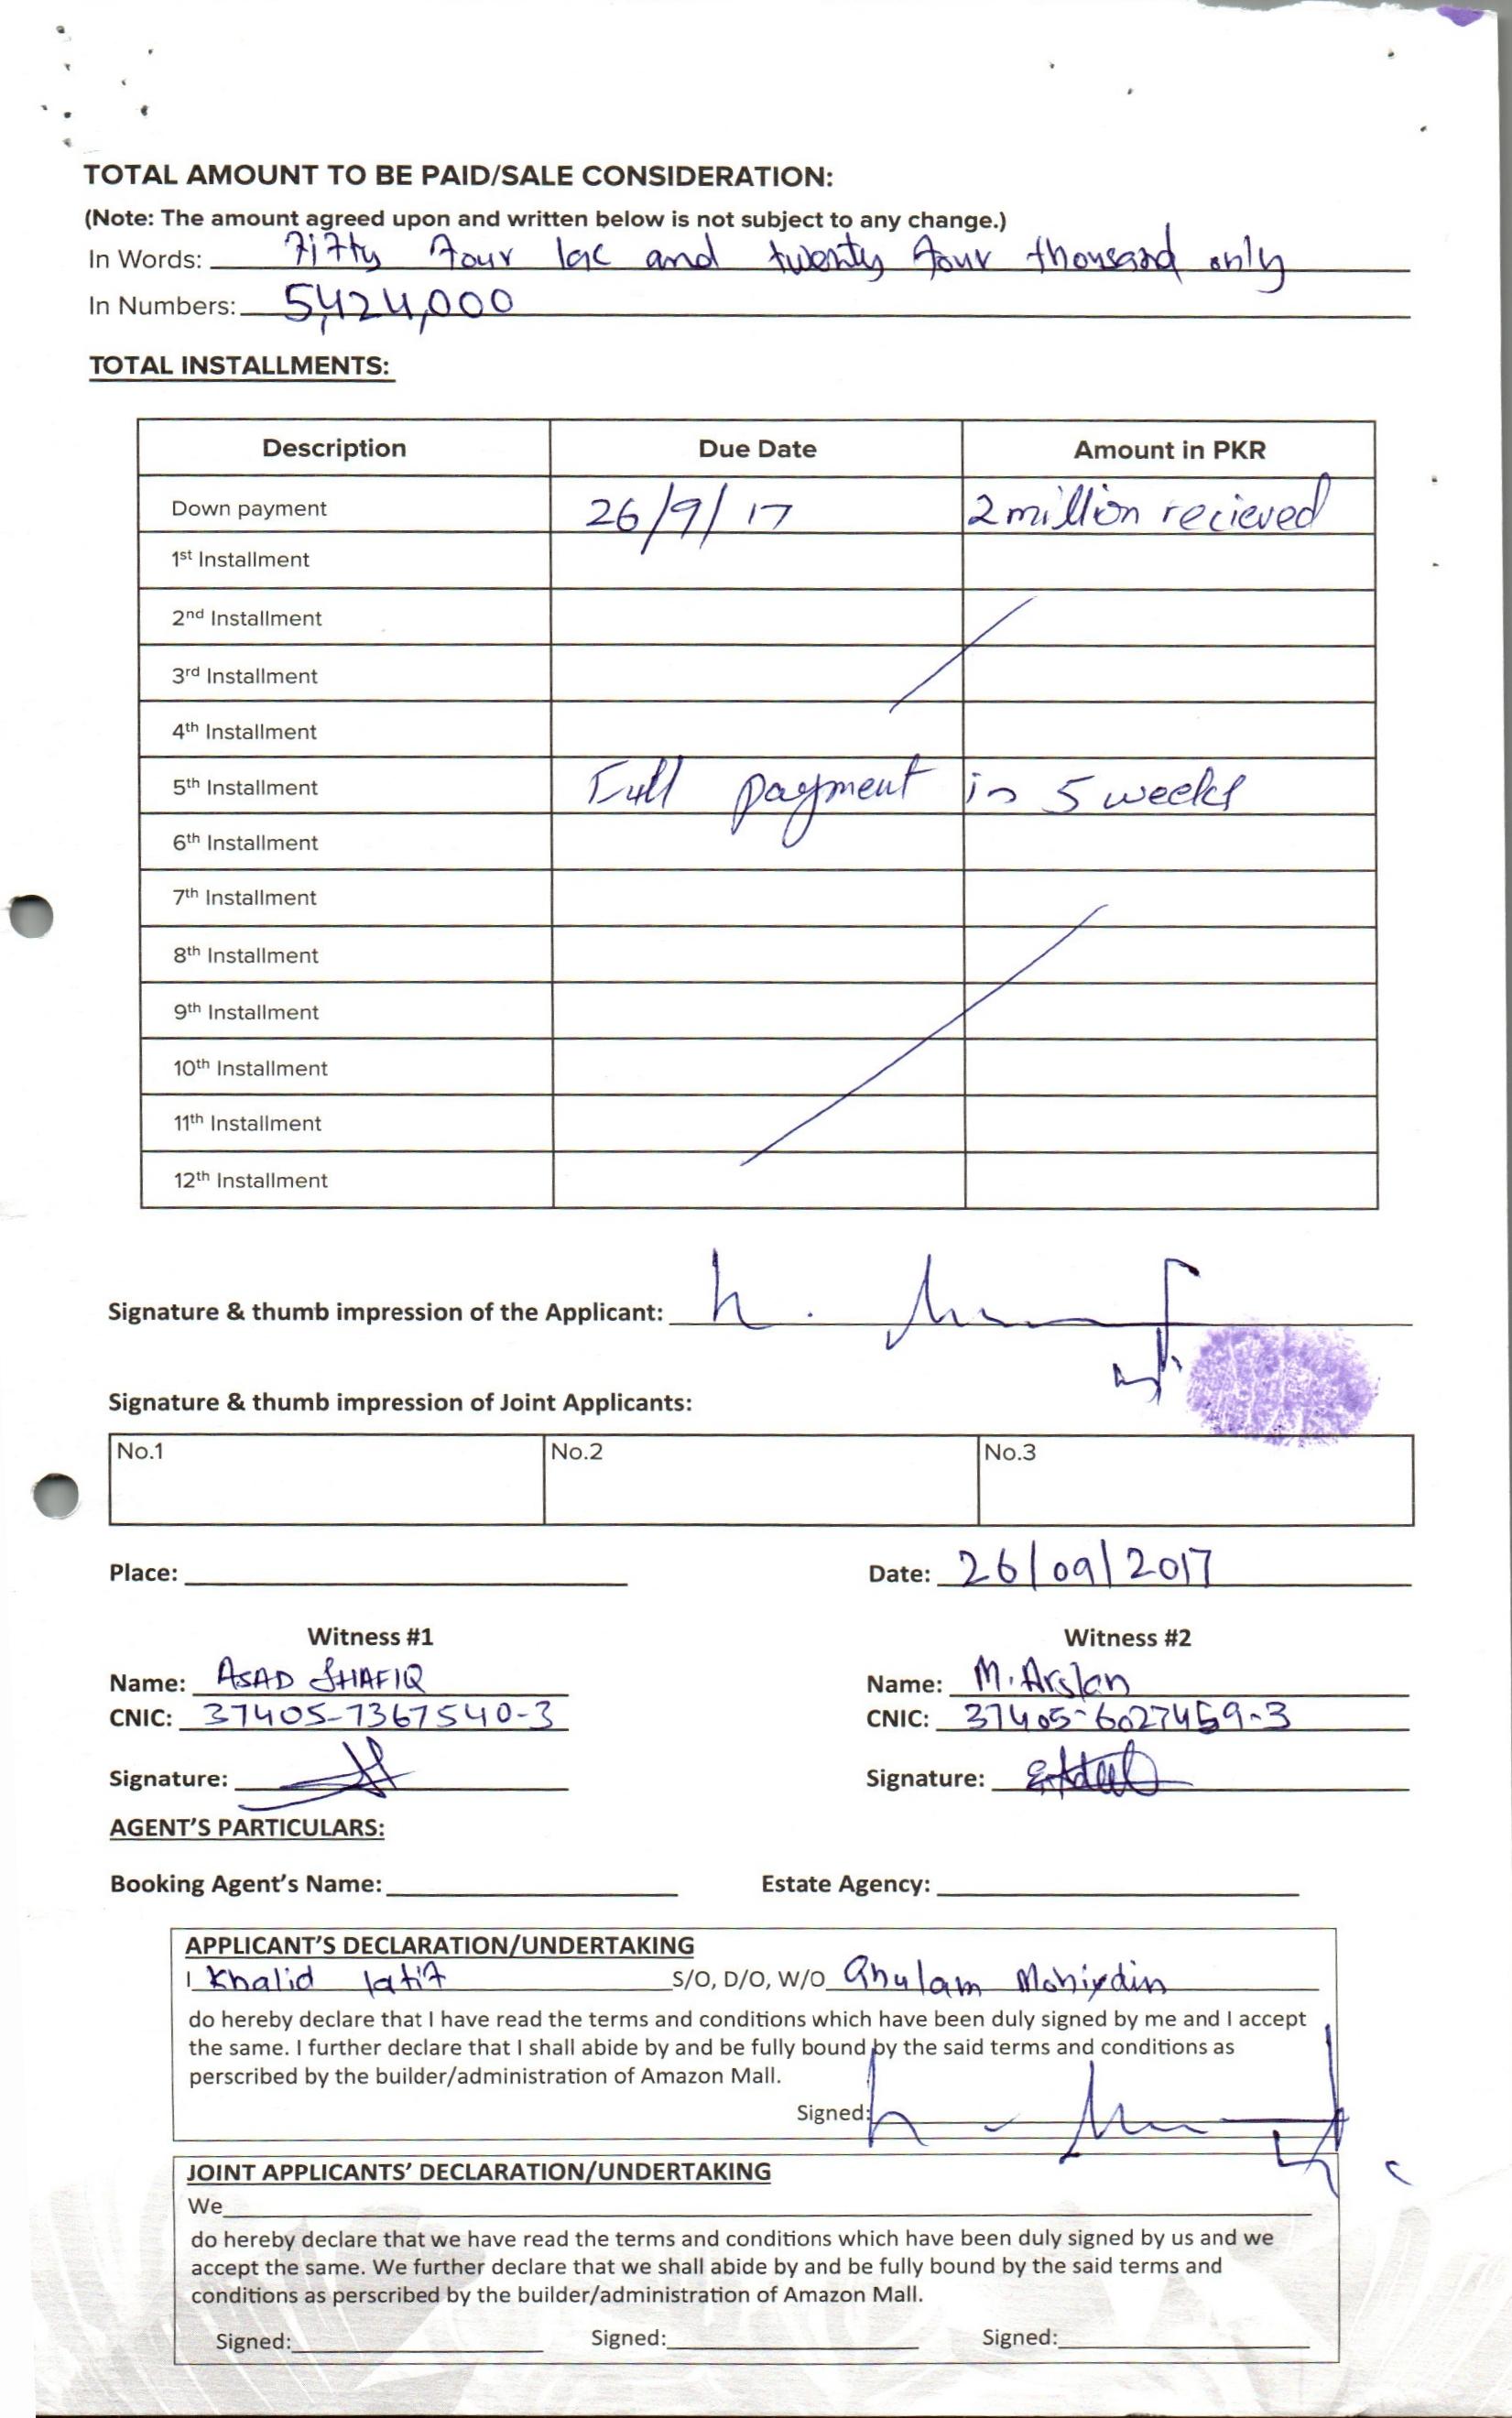 TOTAL AMOUNT TO BE PAID/SALE CONSIDERATION:
(Note: The amount agreed upon and written below is not subject to any change.)
In Words: Fifty four lac and twenty four thousand only
In Numbers: 5,424,000
TOTAL INSTALLMENTS:
Description Due Date Amount in PKR
Down payment 26/9/17 2 million recieved
1st Installment
2nd Installment
3rd Installment
4th Installment
5th Installment Full payment in 5 weeks
6th Installment
7th Installment
8th Installment
9th Installment
10th Installment
11th Installment
12th Installment
Signature & thumb impression of the Applicant:
Signature & thumb impression of Joint Applicants:
No.1 No.2 No.3
Place: Date: 26/09/2017
Witness #1 Witness #2
Name: ASAD SHAFIQ Name: M. Arslan
CNIC: 37405-7367540-3 CNIC: 37405-6027459-3
Signature: Signature:
AGENT'S PARTICULARS:
Booking Agent's Name: Estate Agency:
APPLICANT'S DECLARATION/UNDERTAKING
I Khalid latif S/O, D/O, W/O Ghulam Mohiydin
do hereby declare that I have read the terms and conditions which have been duly signed by me and I accept
the same. I further declare that I shall abide by and be fully bound by the said terms and conditions as
perscribed by the builder/administration of Amazon Mall.
Signed:
JOINT APPLICANTS' DECLARATION/UNDERTAKING
We
do hereby declare that we have read the terms and conditions which have been duly signed by us and we
accept the same. We further declare that we shall abide by and be fully bound by the said terms and
conditions as perscribed by the builder/administration of Amazon Mall.
Signed: Signed: Signed: